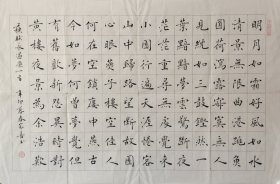 明月如霜好風如水
清景無限曲港跳魚
圓荷瀉露寂寞無人
見紞如三鼓鏗然一
葉黯黯夢雲驚斷夜
茫茫重尋無處覺來
小園行遍天涯倦客
山中歸路望斷故園
心眼燕子樓空佳人
何在空鎖樓中燕古
今如夢何曾夢覺但
有舊歡新怨異時對
黃樓夜景為余浩歎
蘇軾永遇樂一首 辛卯年春